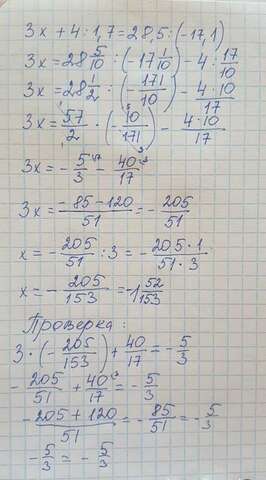 3x + 4 : 1,7 = 28,5 : (-17,1)
3x = 28 5/10 : (-17 1/10) - 4 : 17/10
3x = 28 1/2 : (-171/10) - 4·10/17
3x = 57/2 · (-10/171) - 4·10/17
3x = -5/3 - 40/17
3x = -85-120/51 = -205/51
x = -205/51 : 3 = -205·1/51·3
x = -205/153 = -1 52/153
Проверка:
3 · (-205/153) + 40/17 = -5/3
-205/51 + 40/17 = -5/3
-205+120/51 = -85/51 = -5/3
-5/3 = -5/3